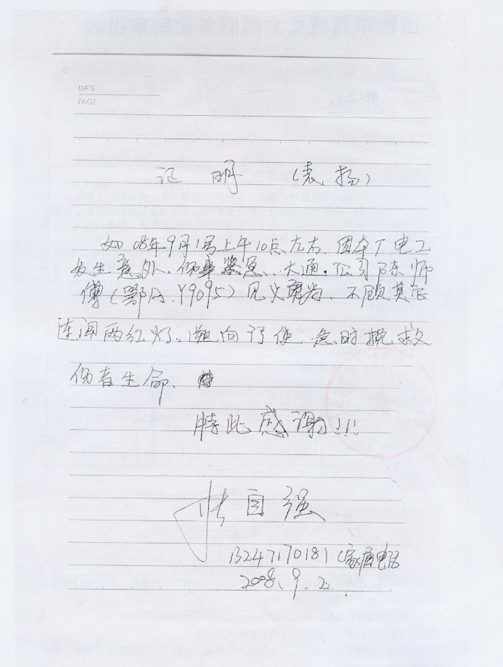 证明 （表扬）
08年9月1号上午10点左右，因本厂电工
发生意外，伤事紧急，大通公司陈师
傅（鄂A.Y9095）见义勇为，不顾其它
连闯两红灯，逆向行使，急时抢救
伤者生命，
特此感谢!!!
自强
13247170181（家属电话
2008.9.2